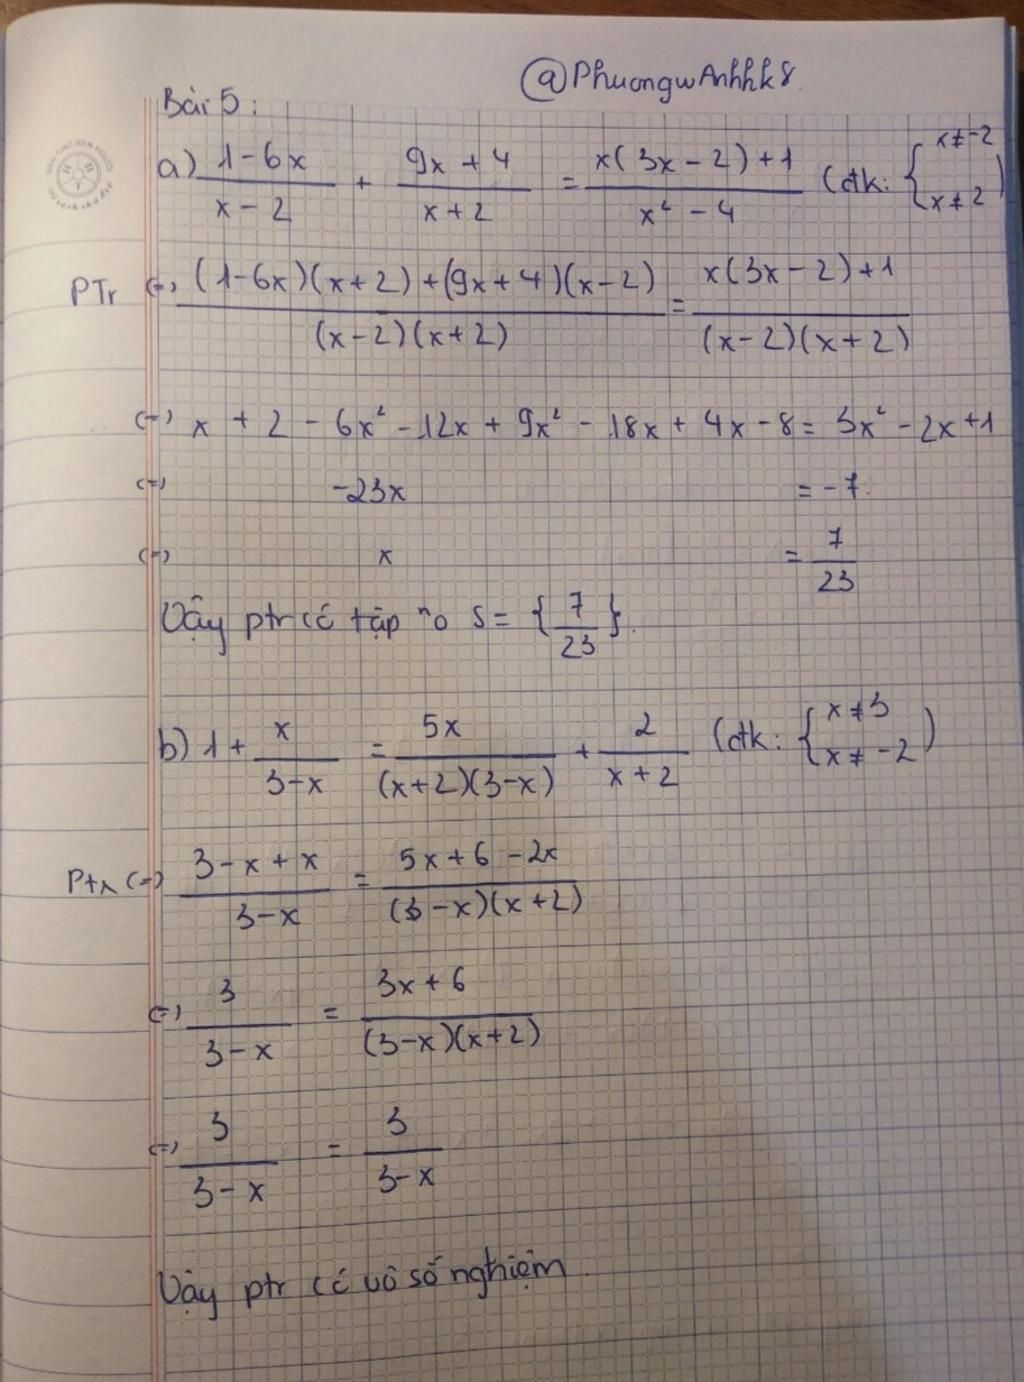 @PhuongwAnhhk8.
Bài 5:
a) (1-6x)/(x-2) + (9x+4)/(x+2) = (x(3x-2)+1)/(x²-4) (đk: { x≠-2 ; x≠2 )
PTr <=> ((1-6x)(x+2)+(9x+4)(x-2))/((x-2)(x+2)) = (x(3x-2)+1)/((x-2)(x+2))
<=> x + 2 - 6x² - 12x + 9x² - 18x + 4x - 8 = 3x² - 2x + 1
<=> -23x = -7.
<=> x = 7/23
Vậy ptr có tập n⁰ S = {7/23}.
b) 1 + x/(3-x) = 5x/((x+2)(3-x)) + 2/(x+2) (đk: { x≠3 ; x≠-2 )
Ptr <=> (3-x+x)/(3-x) = (5x+6-2x)/((3-x)(x+2))
<=> 3/(3-x) = (3x+6)/((3-x)(x+2))
<=> 3/(3-x) = 3/(3-x)
Vậy ptr có vô số nghiệm.